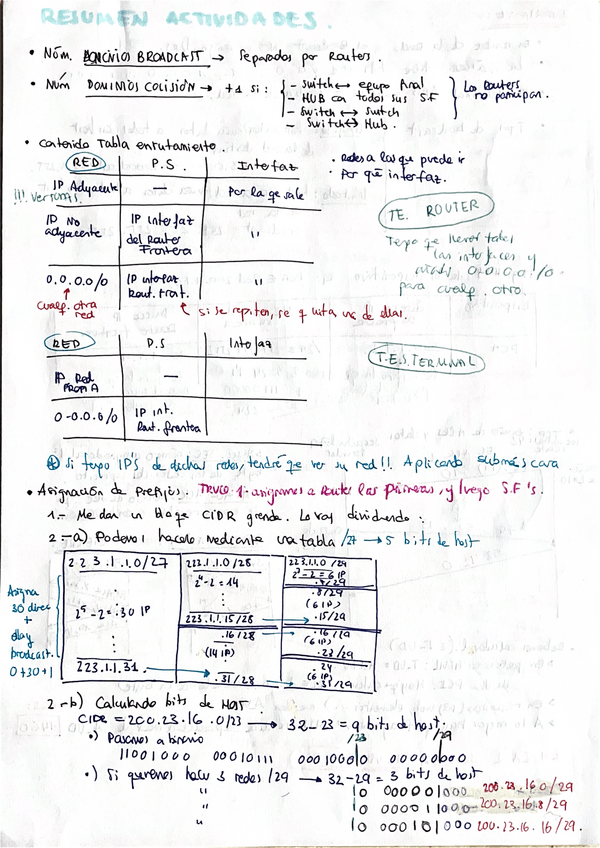 RESUMEN ACTIVIDADES.
• Núm. DOMINIOS BROADCAST → Separados por Routers.
• Núm DOMINIOS COLISIÓN → +1 si:
- switch ↔ equipo final
- HUB con todos sus S.F
- Switch ↔ Switch
Switch ↔ Hub.
Los Routers no participan.
• Contenido Tabla enrutamiento.
RED P.S. Interfaz
IP Adyacente — Por la qe sale
IP No adyacente IP interfaz del Router Frontera "
0.0.0.0/0 IP interfaz Rout. Front. "
cualq. otra red
si se repiten, se quita una de ellas.
• Redes a las que puede ir
• Por qué interfaz.
T.E. ROUTER
Tengo qe llevar todas
las interfaces y
0.0.0.0/0
para cualq. otro.
RED P.S Interfaz
IP Red PROPIA —
0.0.0.0/0 IP int. Rout. frontera
T.E.S. TERMINAL
Si tengo IPS de dichas redes, tendré qe ver su red!!. Aplicando submáscara
• Asignación de Prefijos. TRUCO: 1- asignamos a Router las primeras, y luego S.F's.
1.- Me dan un bloqe CIDR grande. Lo voy dividiendo:
2.-a) Podemos hacerlo mediante una tabla /27 → 5 bits de host
223.1.1.0/27 223.1.1.0/28 223.1.1.0/29
2⁴-2=14 2³-2=6 IP
.8/29
2⁵-2=30 IP (6 IP)
223.1.1.15/28 → .15/29
.16/28 → .16/29
(14 IP) (6 IP)
.23/29
.24
(6 IP)
223.1.1.31 → .31/28 → .31/29
Asigna
30 direc
+
broadcast.
0+30+1
2-b) Calculando bits de HOST
CIDR = 200.23.16.0/23 → 32-23 = 9 bits de host.
•) Pasamos a binario /23 /29
11001000 00010111 00010000 00000000
•) Si queremos hacer 3 redes /29 → 32-29 = 3 bits de host
" 0 00000000 200.23.16.0/29
" 0 00001000 200.23.16.8/29
" 0 00010000 200.23.16.16/29.